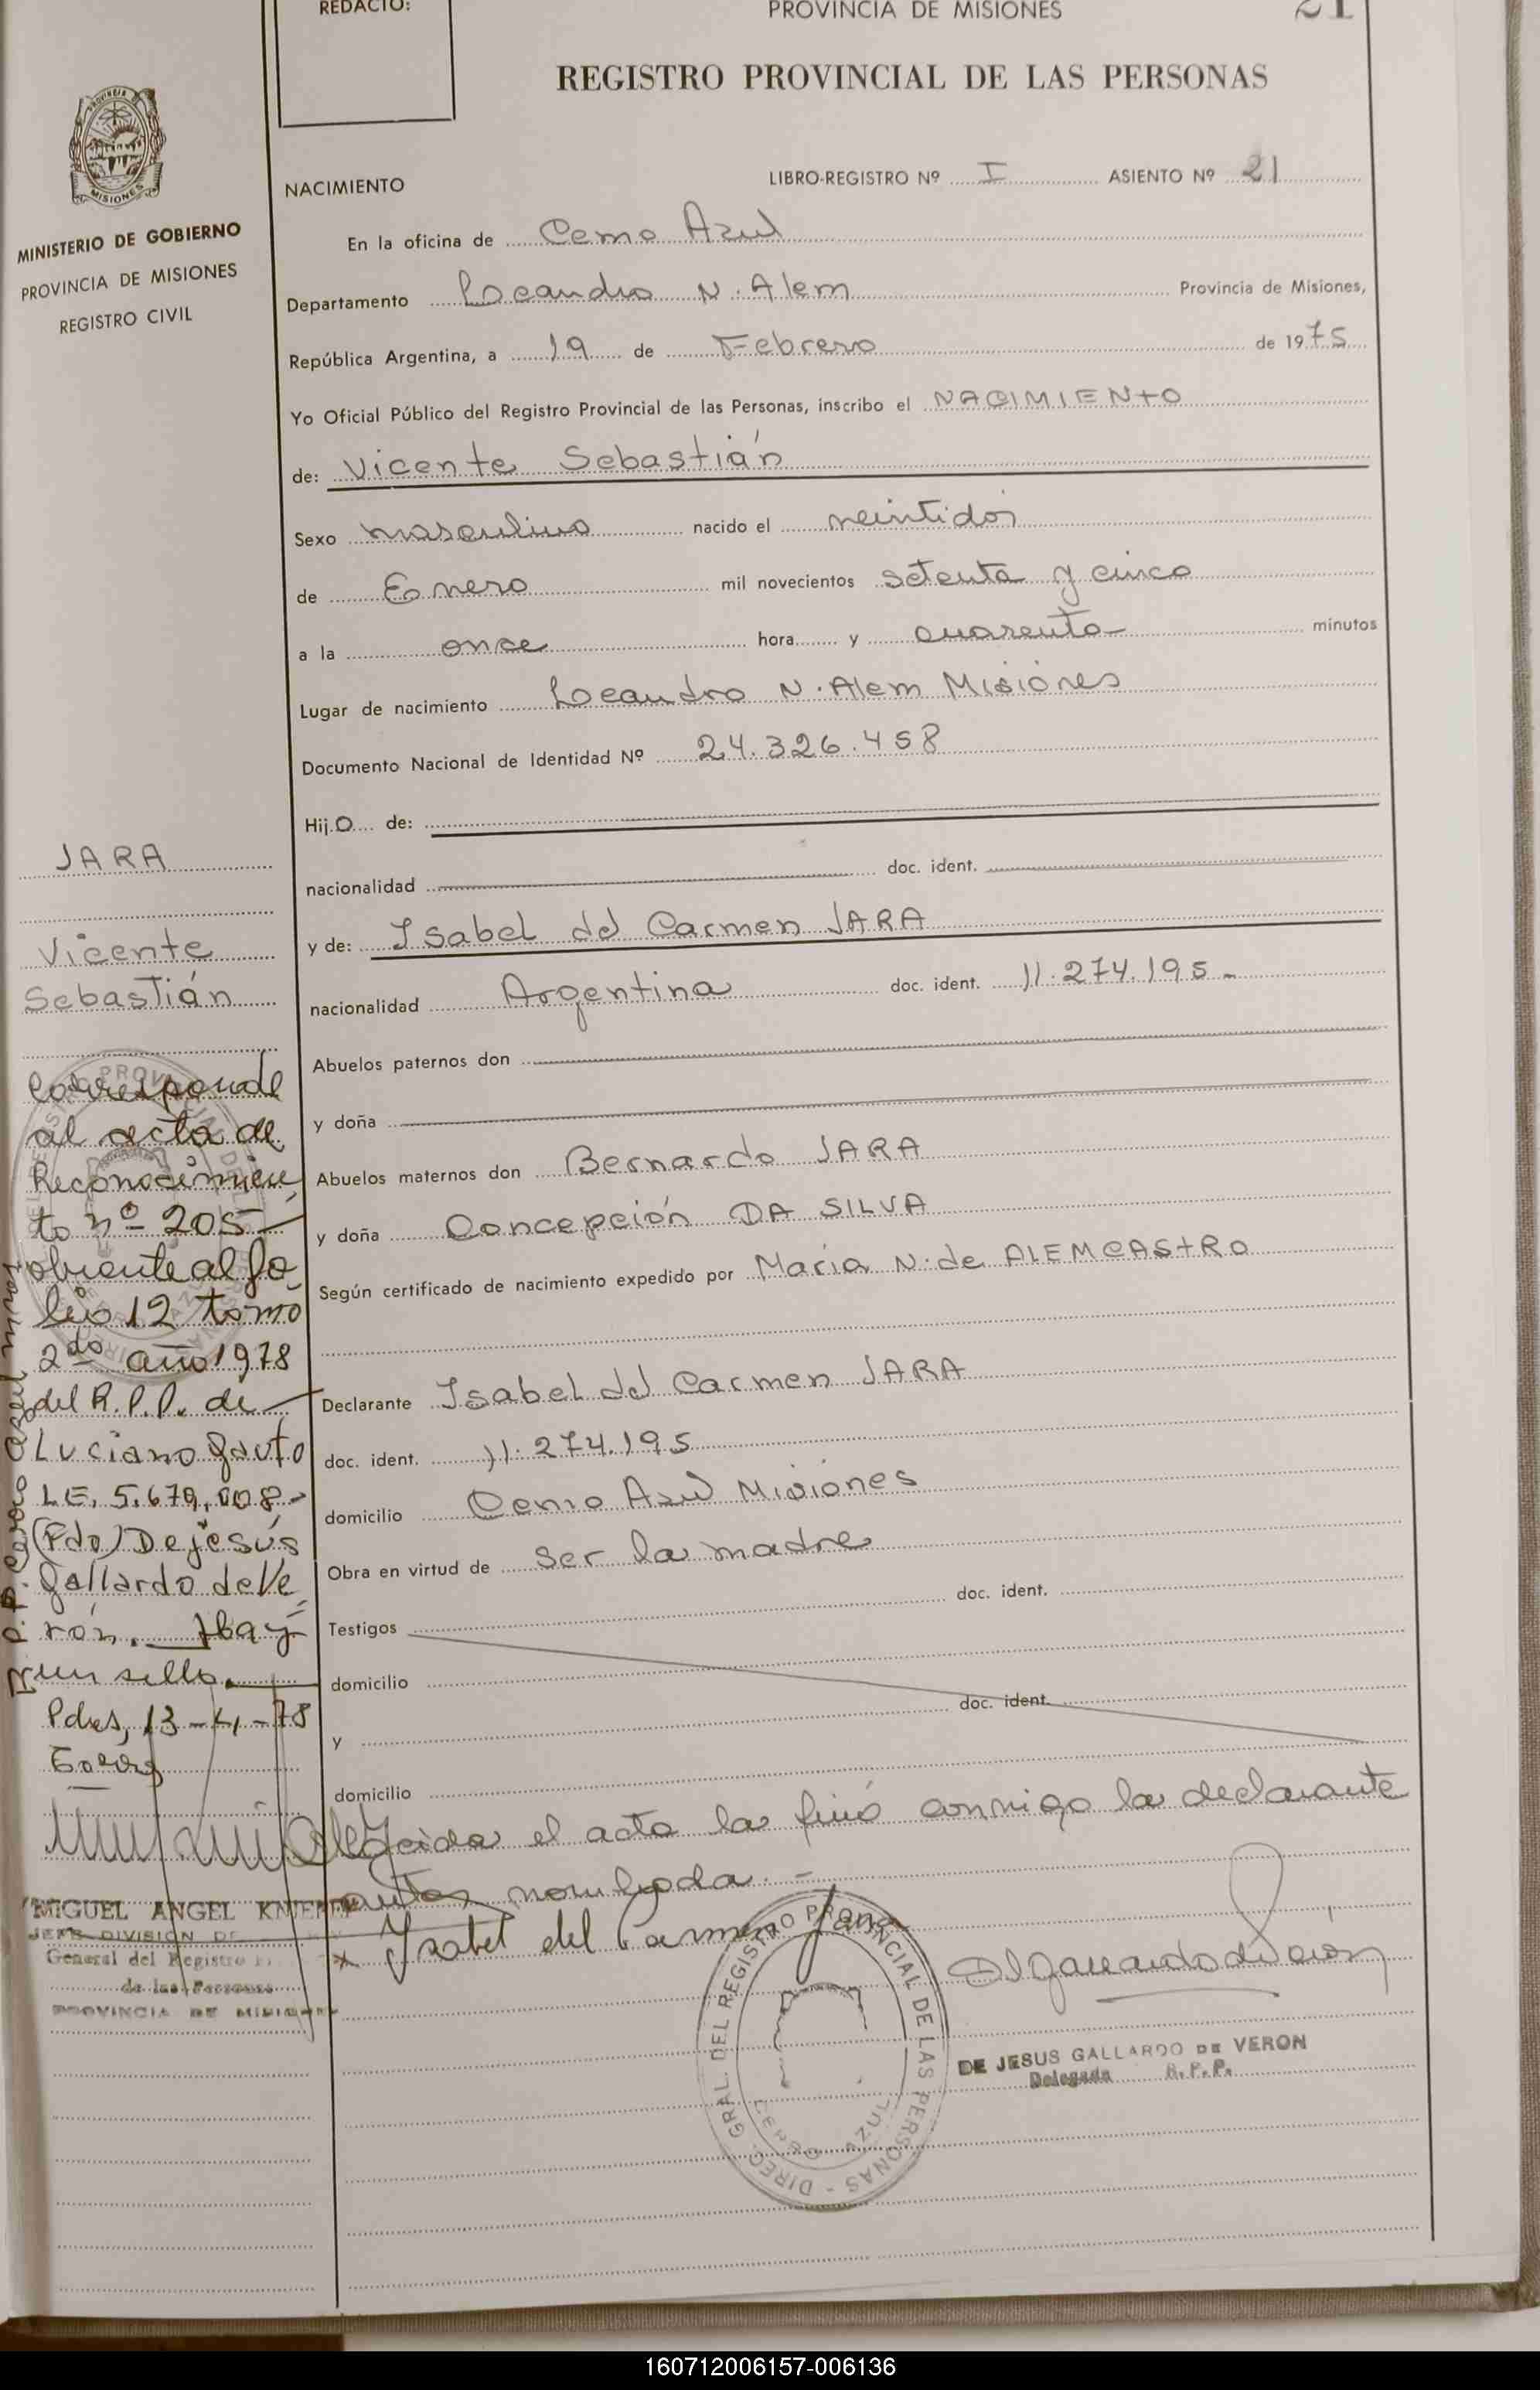 REDACTO:
PROVINCIA DE MISIONES
21
REGISTRO PROVINCIAL DE LAS PERSONAS
MINISTERIO DE GOBIERNO
PROVINCIA DE MISIONES
REGISTRO CIVIL
NACIMIENTO
LIBRO-REGISTRO Nº I ASIENTO Nº 21
En la oficina de Cerro Azul
Departamento Leandro N. Alem Provincia de Misiones,
República Argentina, a 19 de Febrero de 1975
Yo Oficial Público del Registro Provincial de las Personas, inscribo el NACIMIENTO
de: Vicente Sebastián
Sexo masculino nacido el veintidos
de Enero mil novecientos setenta y cinco
a la once hora y cuarenta minutos
Lugar de nacimiento Leandro N. Alem Misiones
Documento Nacional de Identidad Nº 24.326.458
Hij.O de:
nacionalidad doc. ident.
y de: Isabel del Carmen JARA
nacionalidad Argentina doc. ident. 11.274.195-
Abuelos paternos don
y doña
Abuelos maternos don Bernardo JARA
y doña Concepción DA SILVA
Según certificado de nacimiento expedido por Maria N. de ALEMCASTRO
Declarante Isabel del Carmen JARA
doc. ident. 11.274.195
domicilio Cerro Azul Misiones
Obra en virtud de ser la madre
doc. ident.
Testigos
domicilio
doc. ident.
y
domicilio
Leida el acta la firmó conmigo la declarante
antes nombrada.-
x Isabel del Carmen Jara
DIREC. GRAL. DEL REGISTRO PROVINCIAL DE LAS PERSONAS -
AZUL
DE JESUS GALLARDO DE VERON
Delegada R.P.P.
JARA
Vicente
Sebastián
Corresponde
al acta de
Reconocimien
to nº 205
obrante al fo
lio 12 tomo
2do año 1978
del R.P.P. de
Luciano Gauto
LE. 5.679.008.-
(Fdo) De jesús
Gallardo de Ve
rón. Hay
un sello.
Pdas, 13-4-78
MIGUEL ANGEL
JEFE DIVISION DE
General del Registro
de las Personas
PROVINCIA DE MISIONES
160712006157-006136